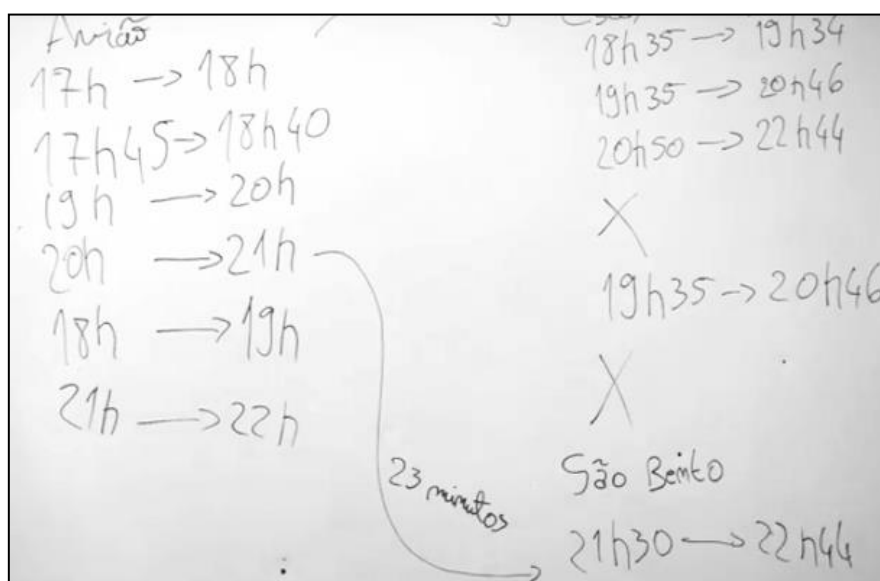 Avião
17h → 18h
17h45 → 18h40
19h → 20h
20h → 21h
18h → 19h
21h → 22h
23 minutos
18h35 → 19h34
19h35 → 20h46
20h50 → 22h44
X
19h35 → 20h46
X
São Bento
21h30 → 22h44